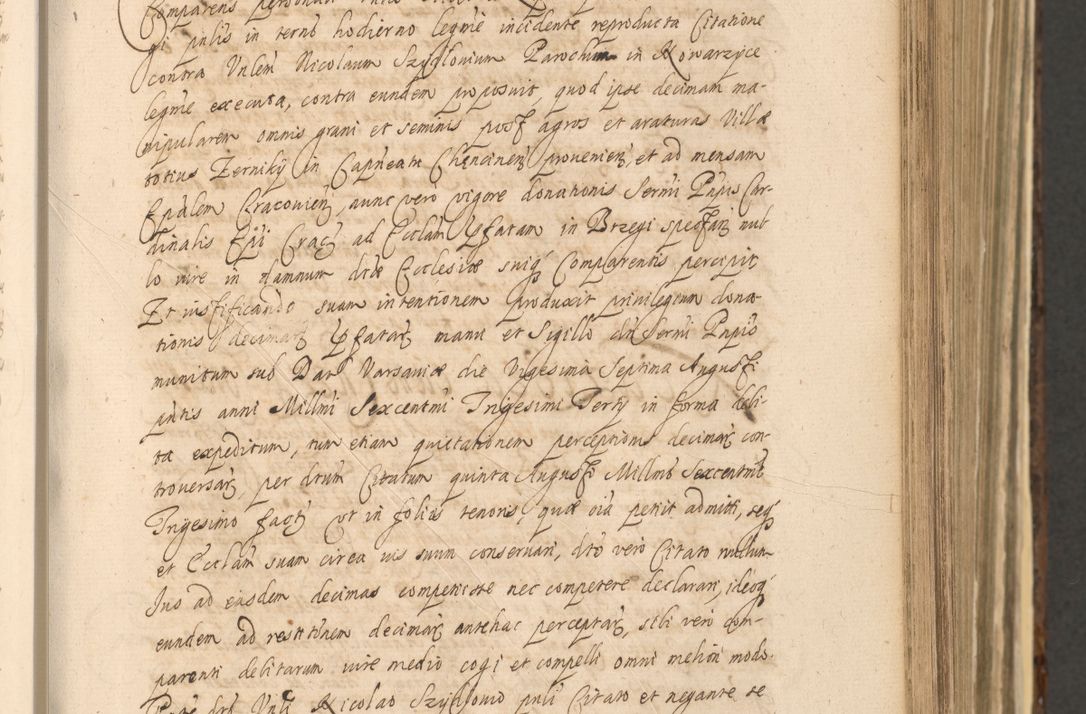 Comparens personaliter
in pnlis in termo hodierno legme incidente reproducta Citatione
contra Vnlem Nicolaum Szydlouium Parochum in Kowarzyce
legme executa, contra eundem proposuit, quod ipse decimam ma-
nipularem omnis grani et seminis post agros et araturas Villæ
totius Zerniky in Capneatu Chencinen provenien, et ad mensam
Epalem Cracouien, nunc vero vigore donationis Sermi Pnpis Car-
dinalis Epi Crac ad Ecclam Pfatam in Brzegi spectan nul-
lo iure in damnum dictæ Ecclesiæ suiq Comparentis percipit
Et iustificando suam intentionem produxit priuilegium dona-
tionis decimar Pfatar manu et Sigillo dti Sermi Pnpis
munitum sub Dat Varsauiæ die Vigesima Septima Augusti
pntis anni Millmi Sexcentmi Trigesimi Tertij in forma debi-
ta expeditum, tum etiam quietationem perceptione decimar con-
trouersar, per dtum Citatum quinta Augusti Millmo Sexcentmo
Trigesimo fact vt in folias tenoris, quæ oia petijt admitti, seq
et Ecclam suam circa ius suum conseruari, dto vero Citato nullum
Ius ad easdem decimas competiisse nec competere declarari, ideoq
eundem ad restitnem decimar antehac perceptar, sibi vero com-
parenti debitarum iure medio cogi et compelli omni meliori modo.
Vnli Nicolao Szydlouio pnli Citato et negante se